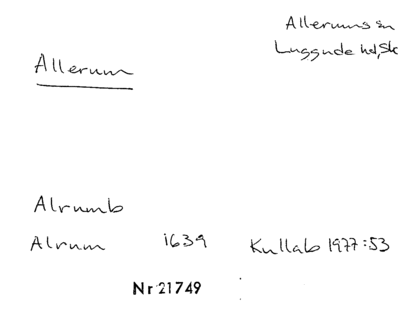 Allerums sn
Luggude hd, Sk
Allerum
Alrumb
Alrum 1639 Kullab 1977:53
Nr 21749